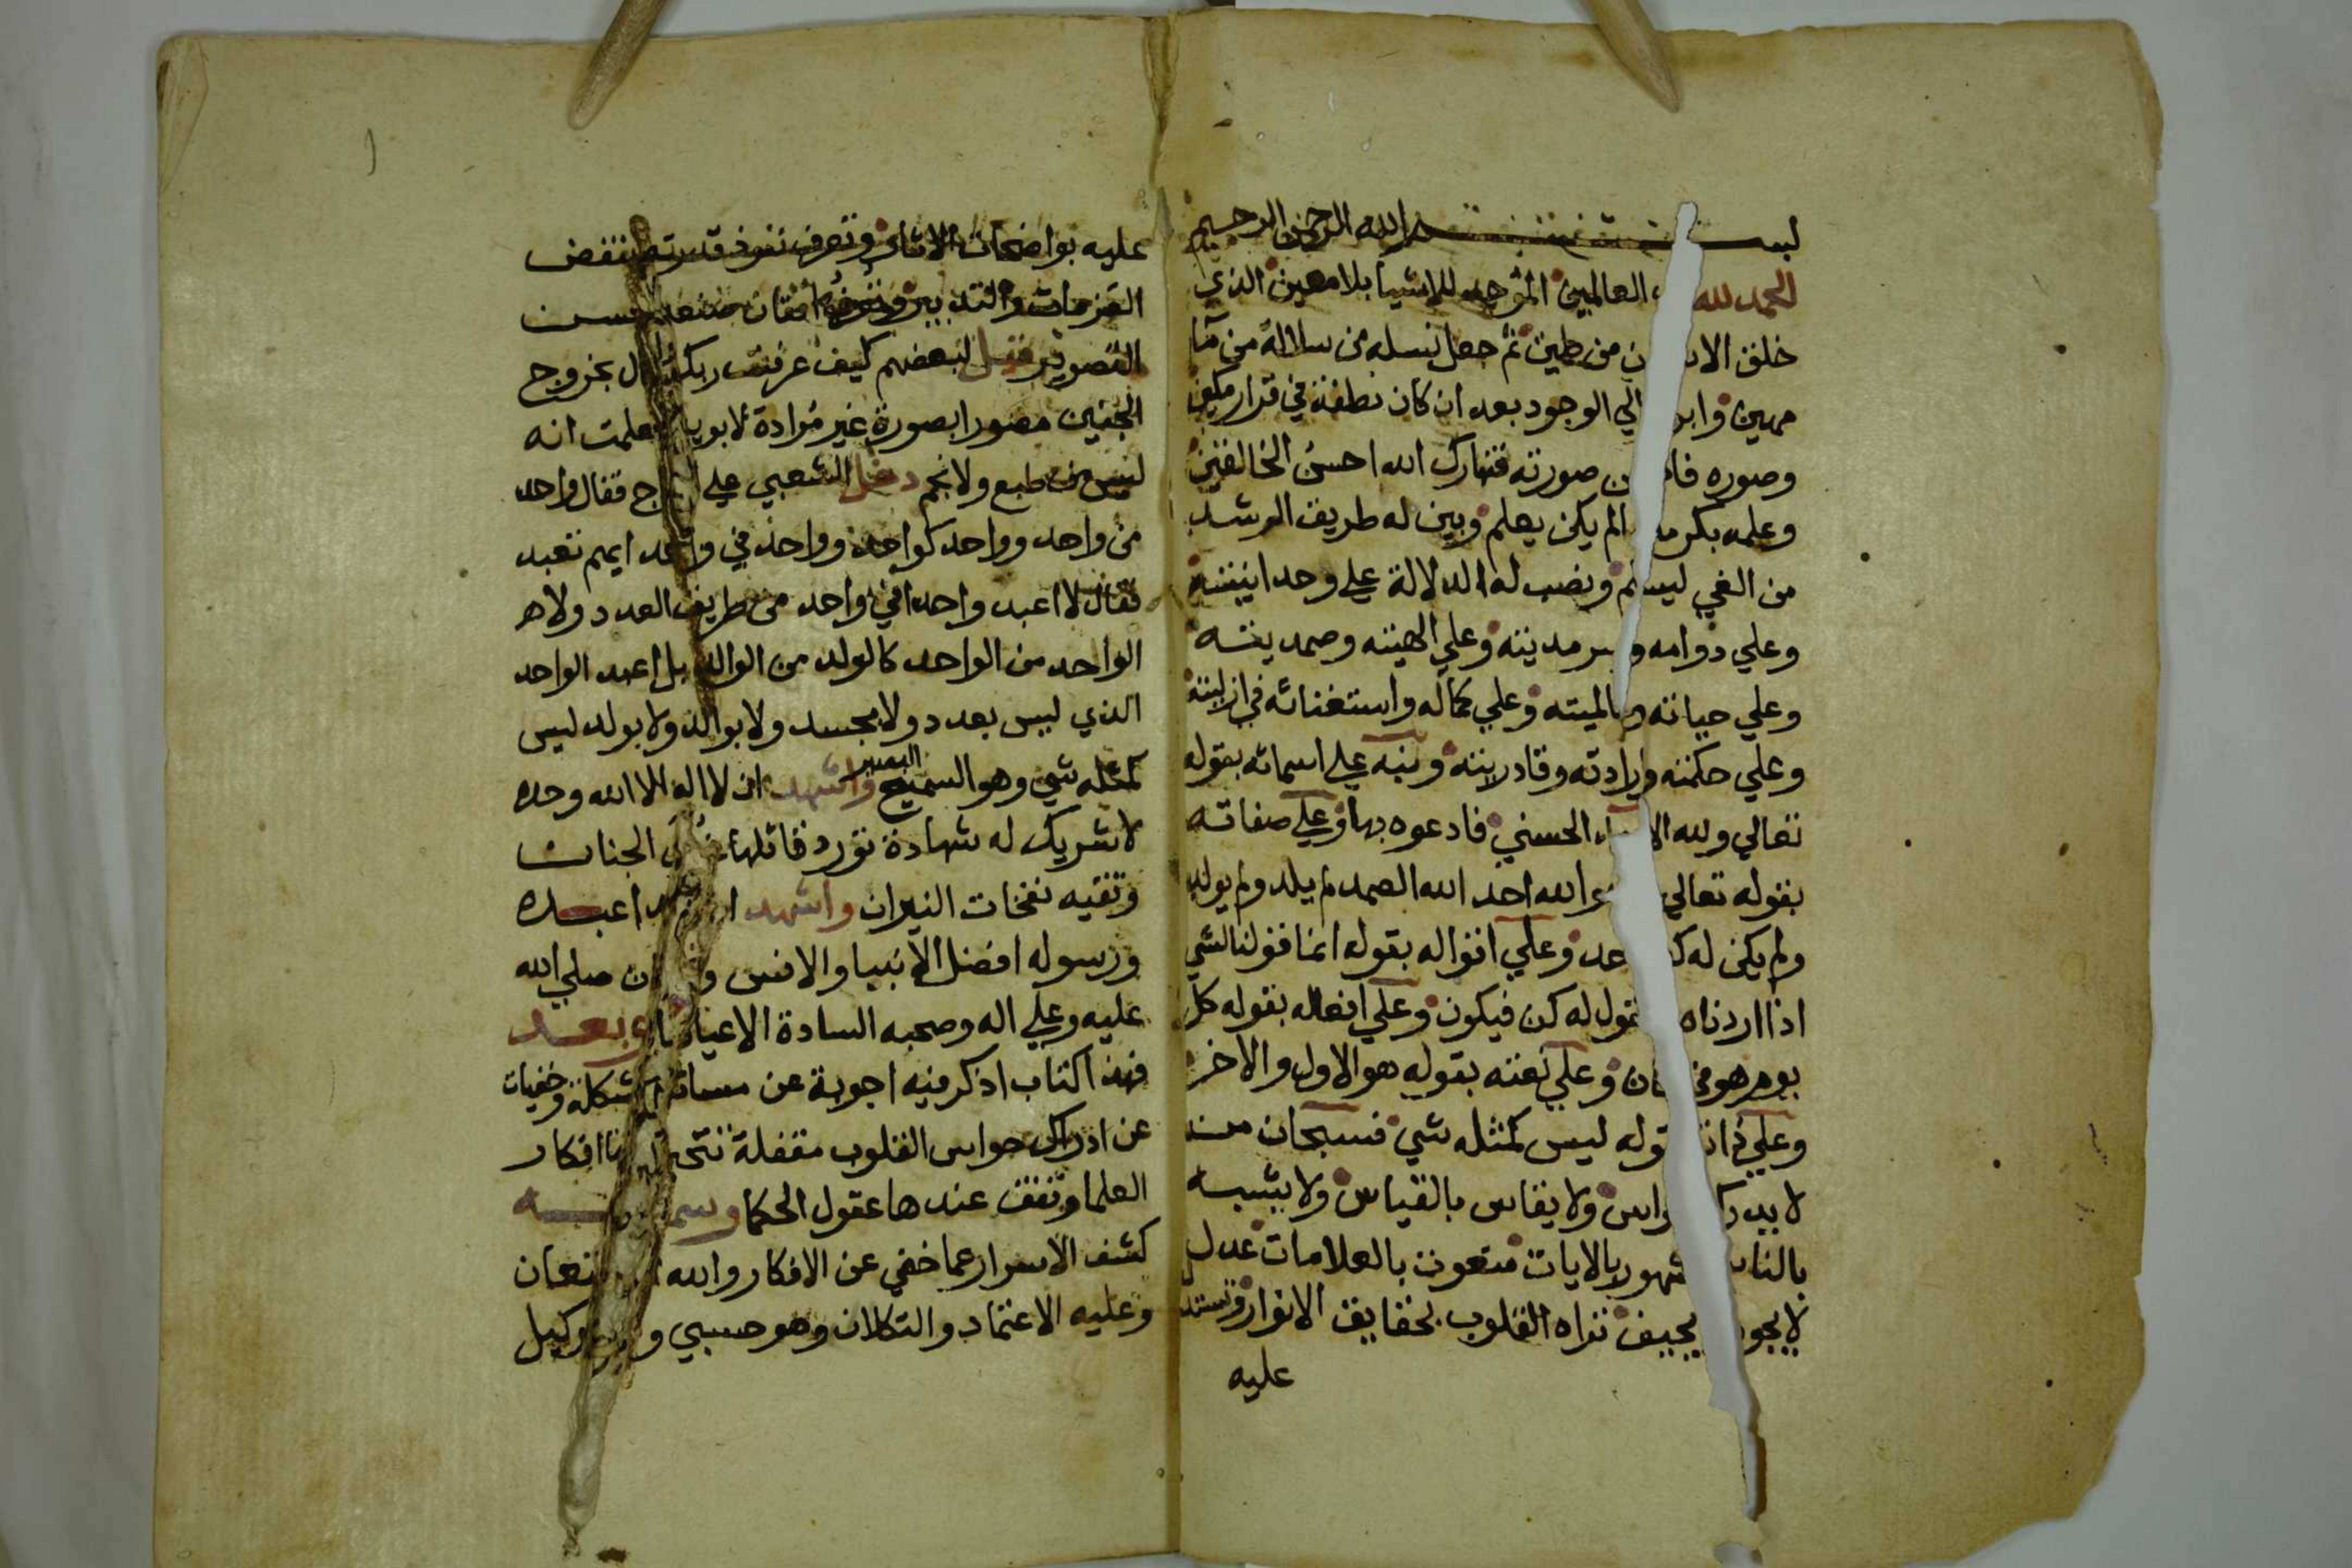 بسم الله الرحمن الرحيم
الحمد لله العالمين الموجد للاشيا بلا معين الذي
خلق من طين ثم جعل نسله من سلالة من مآ
مهين الي الوجود بعد ان كان نطفة في قرار مكين
وصوره صورته فتبارك الله احسن الخالقين
وعلمه يكن يعلم وبين له طريق الرشد
من الغي ونصب له الدلالة علي وحدانيته
وعلي دوامه وعلي الهيته وصمديته
وعلي حياته وعلي كماله واستغنائه في ازليته
وعلي حكمته وارادته وقادريته ونبه علي اسمائه بقوله
تعالي ولله الحسني فادعوه بها وعلي صفاته
بقوله تعالي الله احد الله الصمد لم يلد ولم يولد
ولم يكن له وعلي اقواله بقوله انما قولنا لشي
اذا اردناه نقول له كن فيكون وعلي افعاله بقوله كل
يوم هو وعلي نعته بقوله هو الاول والاخر
وعلي ليس كمثله شي فسبحان من
لا ولا يقاس بالقياس ولا يشبه
بالايات منعوت بالعلامات عدل
لا يحيف تراه القلوب بحقايق الانوار وتستدل
عليه
عليه بواضحات الاثار وتعرف نفوذ قدرته بنقض
العزمات والتدبير اتقان صنعه بحسن
التصوير قيل لبعضهم كيف عرفت ربك بخروج
الجنين مصورا بصورة غير مرادة لابويه علمت انه
ليس من طبع ولا نجم دخل الشعبي علي فقال واحد
من واحد وواحد كواحد وواحد في واحد ايهم تعبد
فقال لا اعبد واحدا في واحد من طريق العدد ولا
الواحد من الواحد كالولد من الوالد بل اعبد الواحد
الذي ليس بعدد ولا بجسد ولا بوالد ولا بولد ليس
كمثله شي وهو السميع البصير واشهد ان لا اله الا الله وحده
لا شريك له شهادة تورد قائلها الجنات
وتقيه نفخات النيران واشهد عبده
ورسوله افضل الانبيا والانس صلي الله
عليه وعلي اله وصحبه السادة الاعيان وبعد
فهذا كتاب اذكر فيه اجوبة عن مسائل مشكلة وخفيات
عن ادراك حواس القلوب مقفلة افكار
العلما وتقف عندها عقول الحكما
كشف الاسرار عما خفي عن الافكار والله المستعان
وعليه الاعتماد والتكلان وهو حسبي ونعم الوكيل